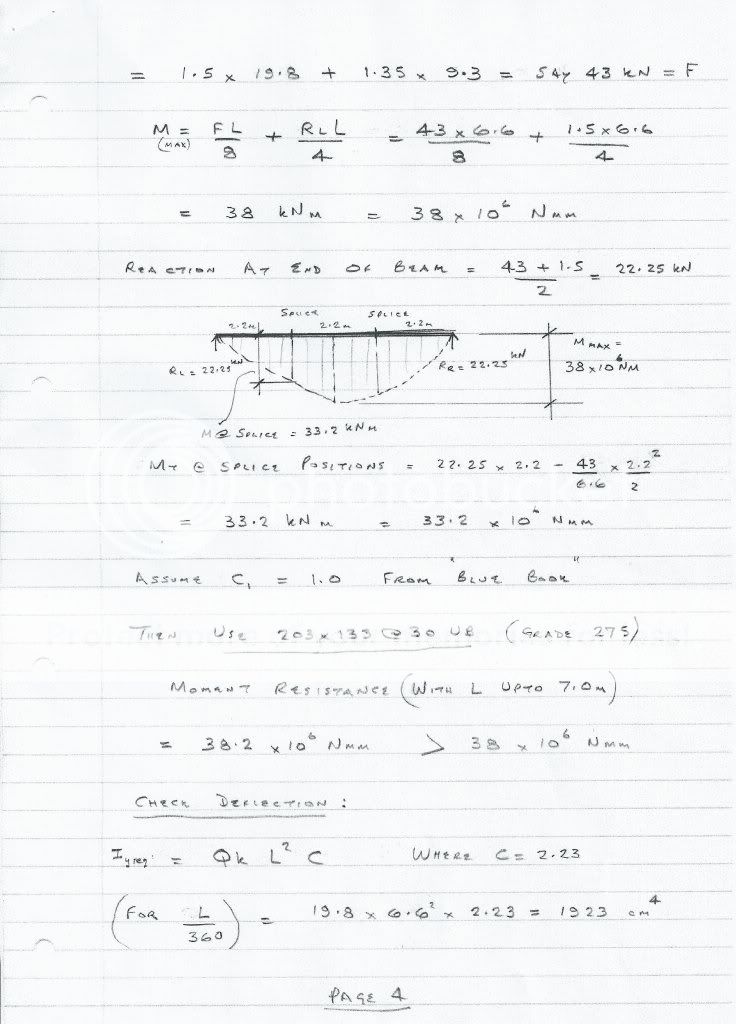 = 1.5 x 19.8 + 1.35 x 9.3 = SAY 43 kN = F
M = FL/8 + RLL/4 = 43 x 6.6/8 + 1.5 x 6.6/4
(MAX)
= 38 kNm = 38 x 10⁶ Nmm
REACTION AT END OF BEAM = 43 + 1.5/2 = 22.25 kN
SPLICE SPLICE
2.2m 2.2m 2.2m
RL = 22.25 kN RR = 22.25 kN M MAX = 38 x 10⁶ NM
M @ SPLICE = 33.2 kNM
MT @ SPLICE POSITIONS = 22.25 x 2.2 - 43/6.6 x 2.2²/2
= 33.2 kNm = 33.2 x 10⁶ Nmm
ASSUME C1 = 1.0 FROM "BLUE BOOK"
THEN USE 203 x 133 @ 30 UB (GRADE 275)
MOMENT RESISTANCE (WITH L UPTO 7.0m)
= 38.2 x 10⁶ Nmm > 38 x 10⁶ Nmm
CHECK DEFLECTION :
Iy req: = Qk L² C WHERE C = 2.23
(FOR L/360) = 19.8 x 6.6² x 2.23 = 1923 cm⁴
PAGE 4